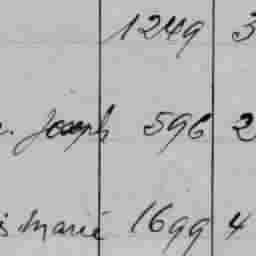 1249 3
. Joseph 596 2
s Marie 1699 4